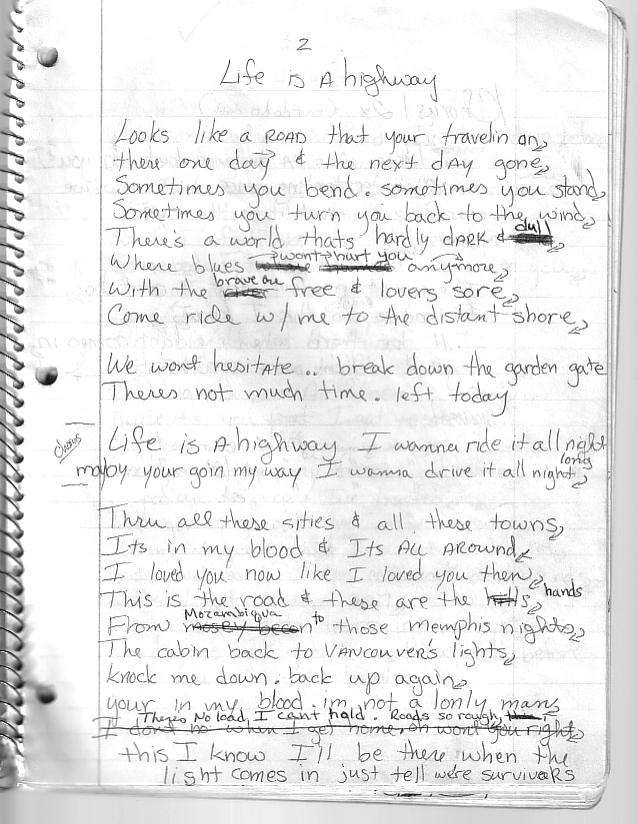 2
Life is A highway
Looks like a ROAD that your travelin on,
there one day & the next dAy gone,
Sometimes you bend. somotimes you stand,
Sometimes you turn you back to the wind,
There's a world thats hardly dARK & dull,
Where blues wont hurt you anymore,
With the brave are free & lovers sore,
Come ride w/ me to the distant shore,
We wont hesitAte.. break down the garden gate
Theres not much time. left today
chorus
Life is A highway I wanna ride it all night long
mayby your goin my way I wanna drive it all night,
Thru all these sities & all these towns,
Its in my blood & Its ALL AROWND,
I loved you now like I loved you then,
This is the road & these are the hands
From Mozambiqua to those memphis nights,
The cabin back to VANCOUVER'S lights,
knock me down. back up again,
your in my blood. im not a lonly man,
Theres No load I cant hold. Roads so rough,
I dont no when I get home, oh wont you right,
this I know I'll be there when the
light comes in just tell we're survivaRs